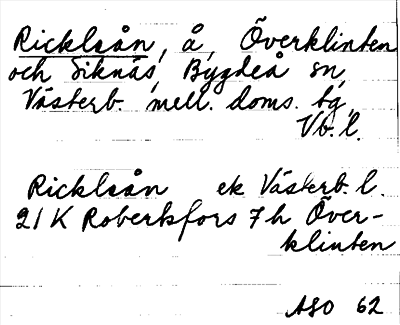 Ricklsån, å, Överklinten
och Siknäs, Bygdeå sn,
Västerb. mell. doms. bg,
Vb. l.
Ricklsån ek Västerb. l.
21 K Robertsfors 7 h Över-
klinten
ASO 62